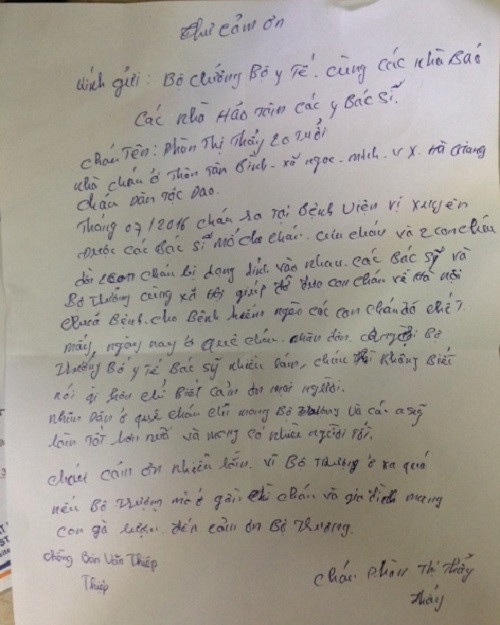 Thư cảm ơn
kính gửi: Bộ trưởng Bộ y Tế. cùng các nhà Báo
Các nhà Hảo tâm các y Bác sĩ.
Cháu Tên: Phàn Thị Thẩy 20 Tuổi
nhà cháu ở Thôn Tân Bình. xã ngọc. minh. V X. Hà Giang
cháu Dân Tộc Dao.
Tháng 07/2016 cháu ra tại Bệnh Viện vị xuyên
Được các Bác sĩ mổ cho cháu. cứu cháu và 2 con cháu
2 con cháu bị dạng dính vào nhau. các Bác sỹ và
Bộ Trưởng cùng xã hội giúp đỡ đưa con cháu về Hà nội
chữa Bệnh. cho Bệnh hiểm nghèo các con cháu đỡ
mấy, ngày nay ở quê cháu. nhân dân.
Trưởng Bộ y Tế Bác sỹ nhiều lắm, cháu Không Biết
nói gì hơn chỉ Biết cảm ơn mọi người.
nhân Dân ở quê cháu chỉ mong Bộ trưởng và các sỹ
làm tốt hơn nữa và mong có nhiều người tốt.
cháu cảm ơn nhiều lắm. vì Bộ Trưởng ở xa quá
nếu Bộ Trưởng mà ở gần thì cháu và gia đình mang
con gà đến cảm ơn Bộ Trưởng.
chồng Bàn Văn Thiệp
Thiệp
Cháu Phàn Thị Thẩy
Thẩy